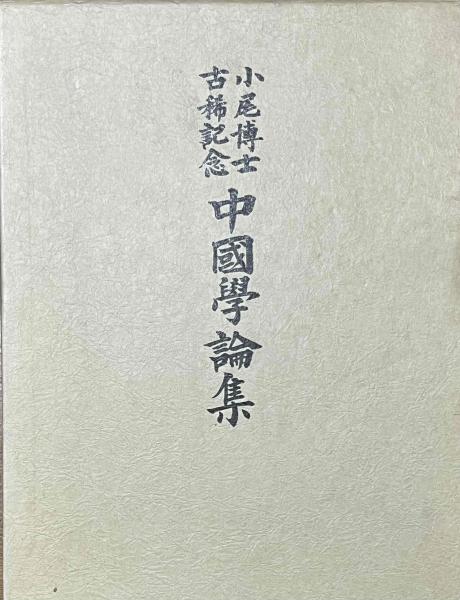 小尾博士
古稀記念
中國學論集